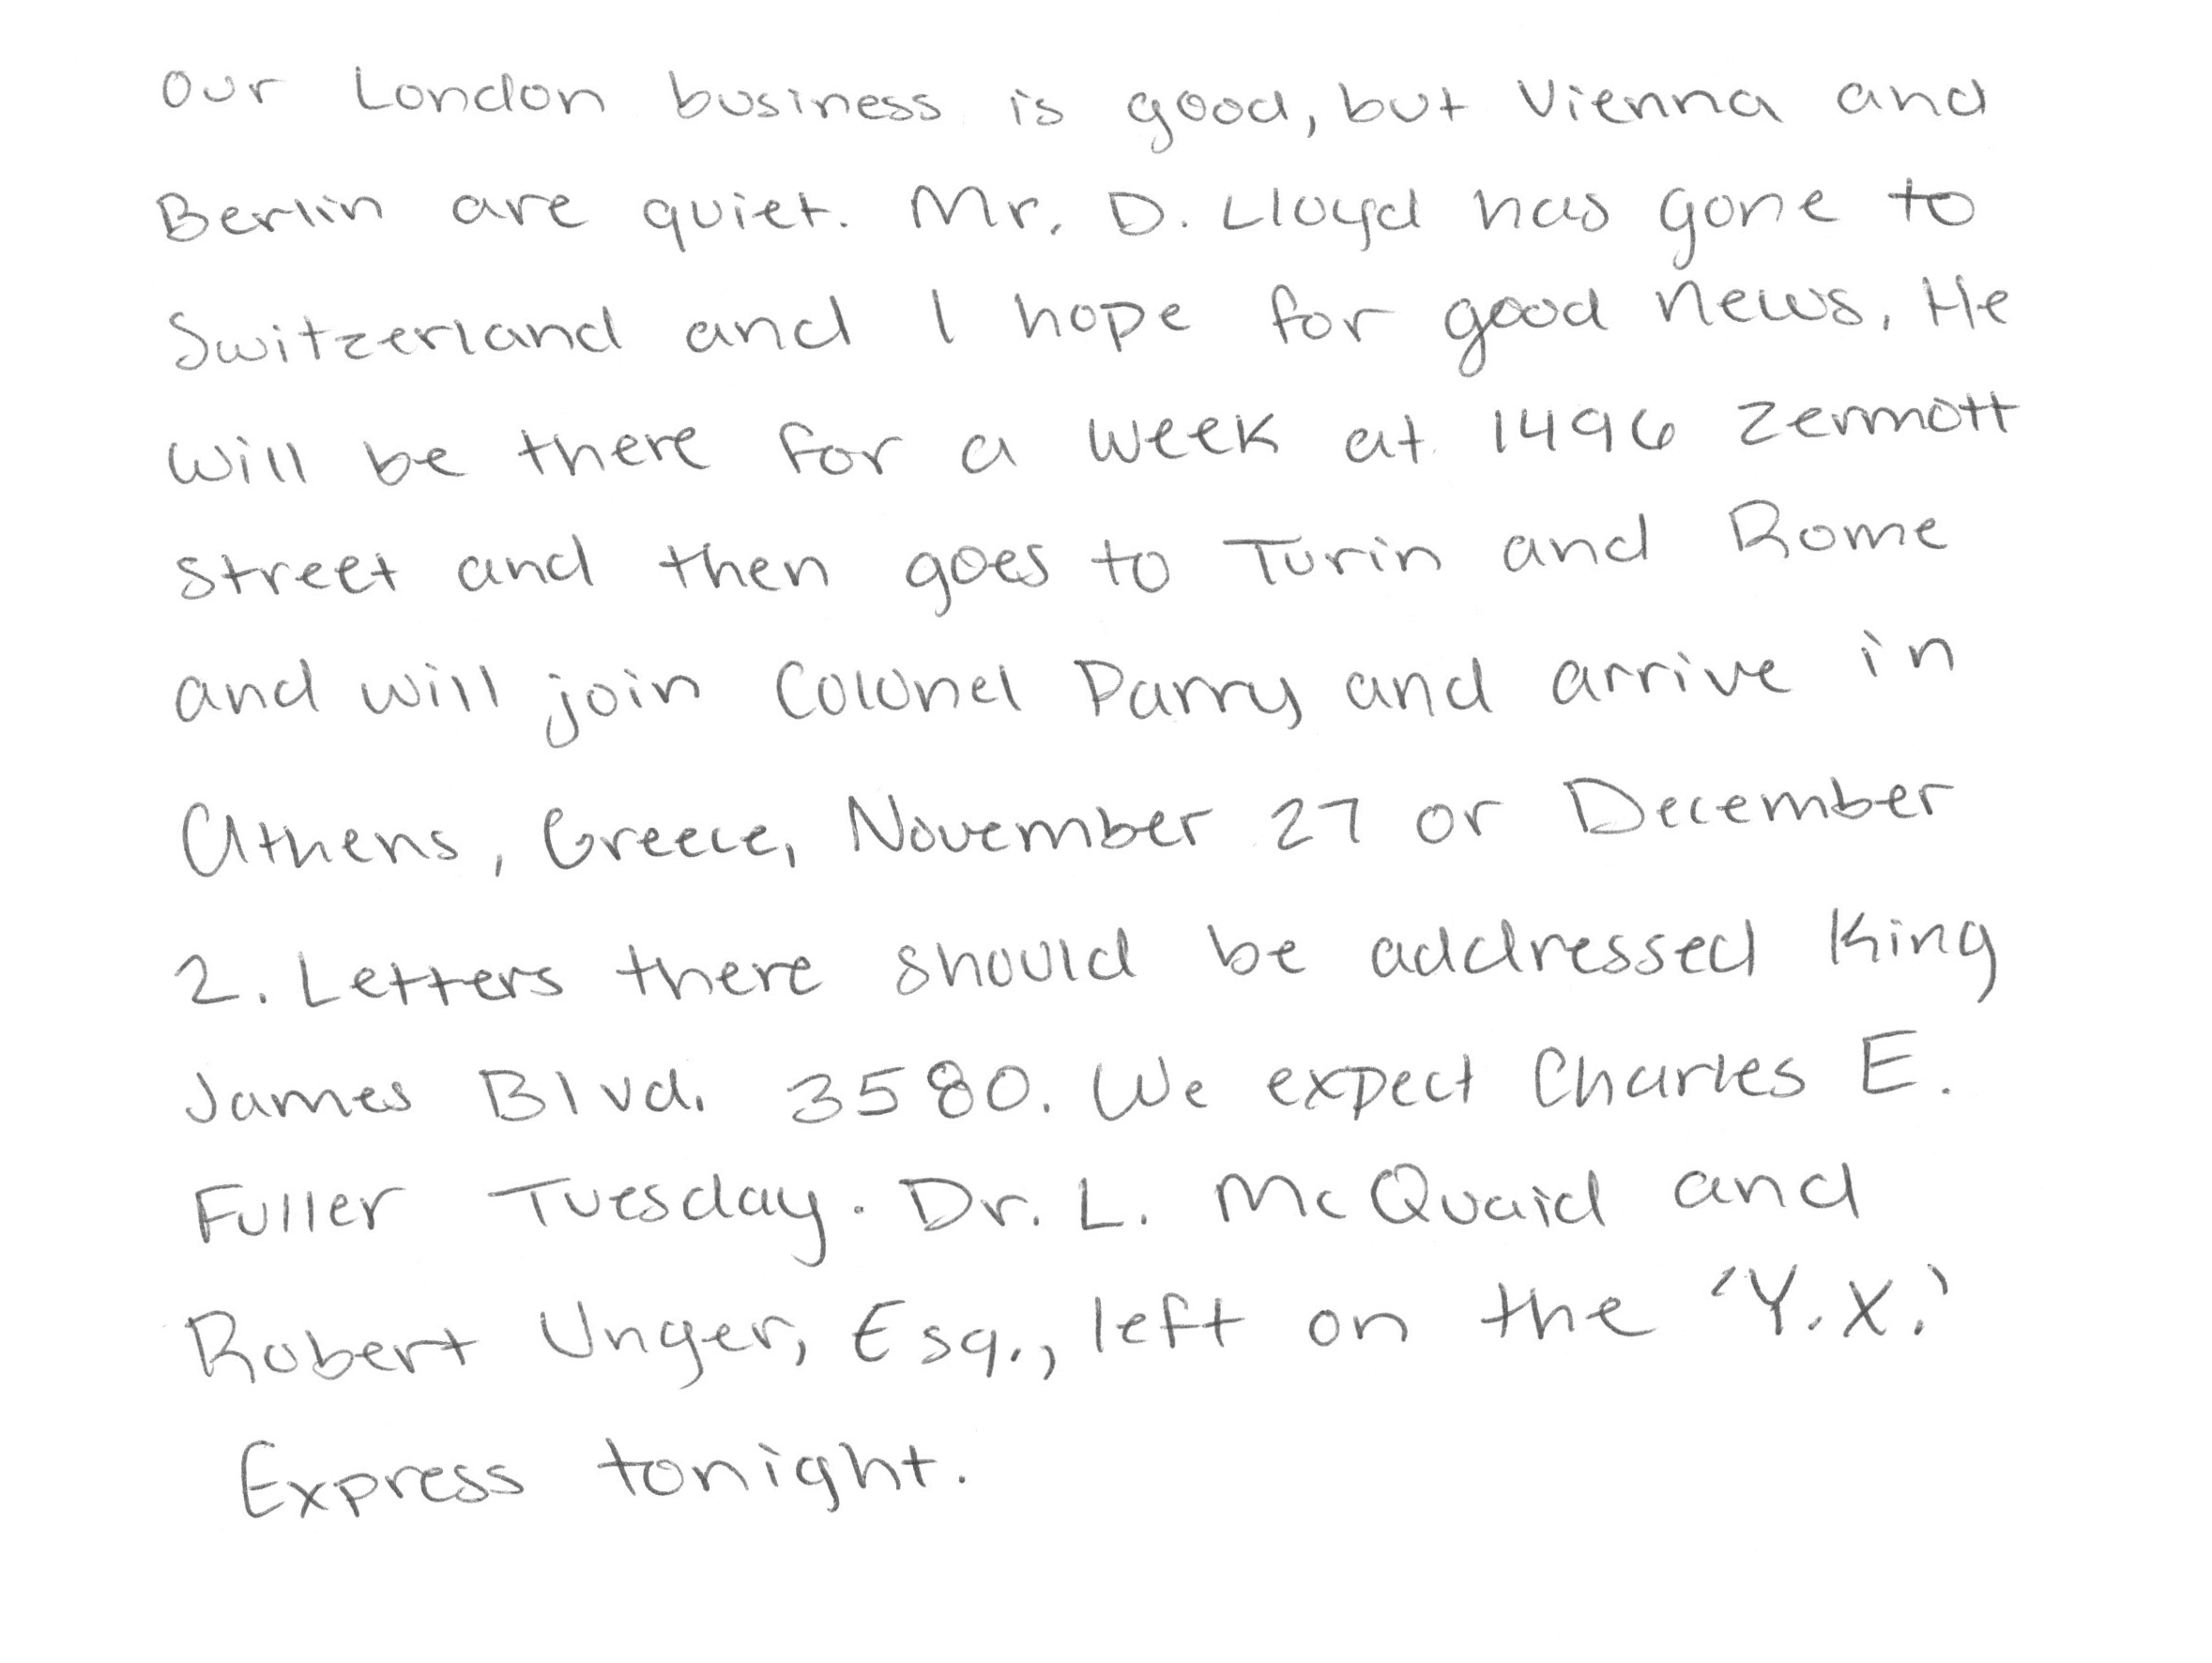 Our London business is good, but Vienna and
Berlin are quiet. Mr. D. Lloyd has gone to
Switzerland and I hope for good news. He
will be there for a week at 1496 Zermott
street and then goes to Turin and Rome
and will join Colonel Parry and arrive in
Athens, Greece, November 27 or December
2. Letters there should be addressed King
James Blvd. 3580. We expect Charles E.
Fuller Tuesday. Dr. L. McQuaid and
Robert Unger, Esq., left on the 'Y.X.'
Express tonight.